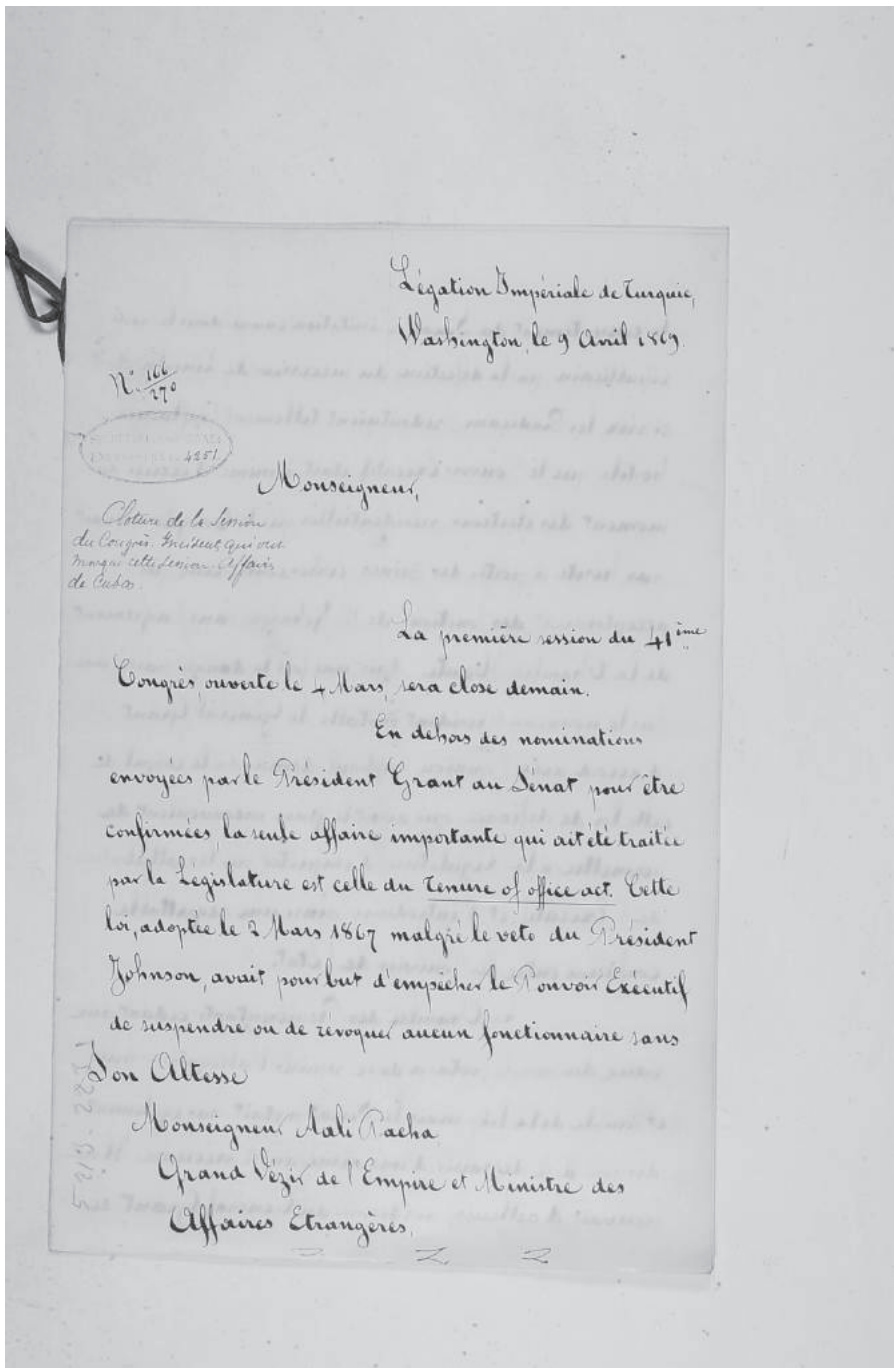 Légation Impériale de Turquie,
Washington, le 9 Avril 1869.
N° 166/270
4251
Monseigneur,
Cloture de la Session
du Congrès. Incident qui ont
marqué cette session. Affaires
de Cuba.
La première session du 41ième
Congrès, ouverte le 4 Mars, sera close demain.
En dehors des nominations
envoyées par le Président Grant au Sénat pour être
confirmées, la seule affaire importante qui ait été traitée
par la Législature est celle du Tenure of office act. Cette
loi, adoptée le 2 Mars 1867 malgré le veto du Président
Johnson, avait pour but d'empêcher le Pouvoir Exécutif
de suspendre ou de révoquer aucun fonctionnaire sans
Son Altesse
Monseigneur Aali Pacha
Grand Vézir de l'Empire et Ministre des
Affaires Etrangères.